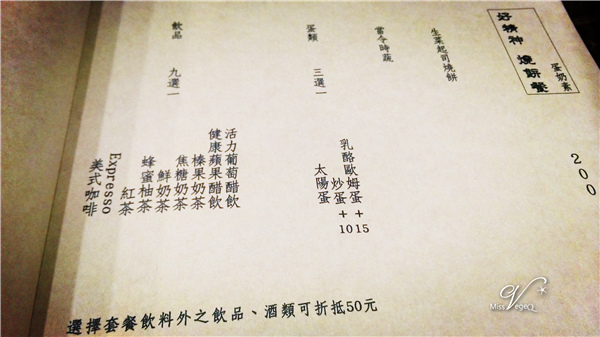 好精神 燒餅餐
蛋奶素
200
生菜起司燒餅
當令時蔬
蛋類 三選一
乳酪歐姆蛋+15
炒蛋+10
太陽蛋
飲品 九選一
活力葡萄醋飲
健康蘋果醋飲
榛果奶茶
焦糖奶茶
鮮奶茶
蜂蜜柚茶
紅茶
Expresso
美式咖啡
選擇套餐飲料外之飲品、酒類可折抵50元
Miss VegeQ